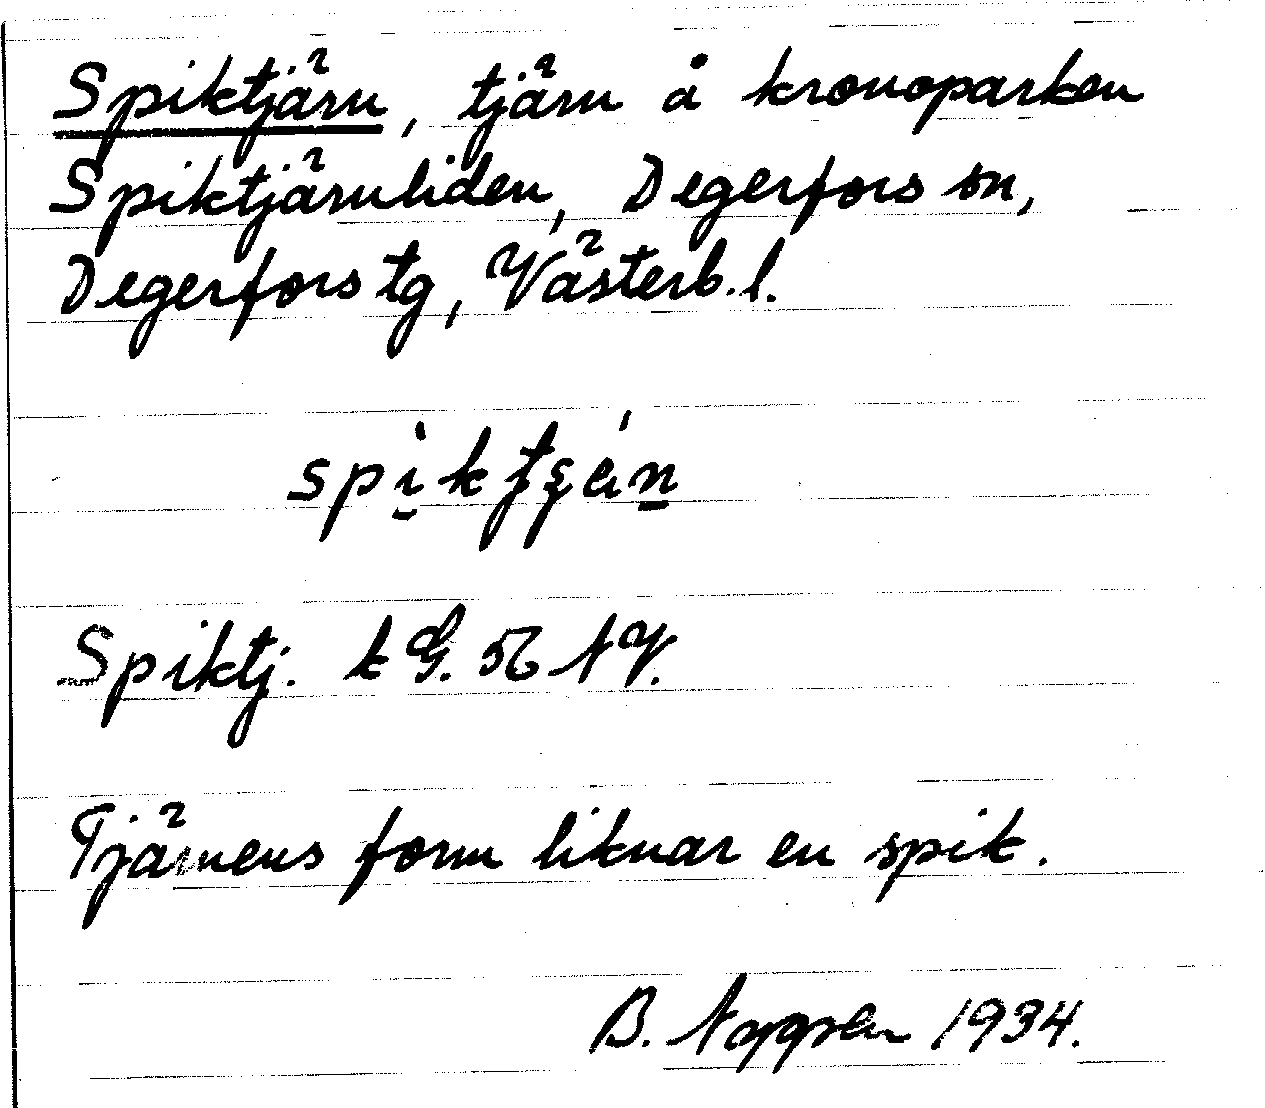 Spiktjärn, tjärn å kronoparken
Spiktjärnliden, Degerfors sn,
Degerfors tg, Västerb. l.
Spiktj. k G. 52 NV.
Tjärnens form liknar en spik.
B. 1934.